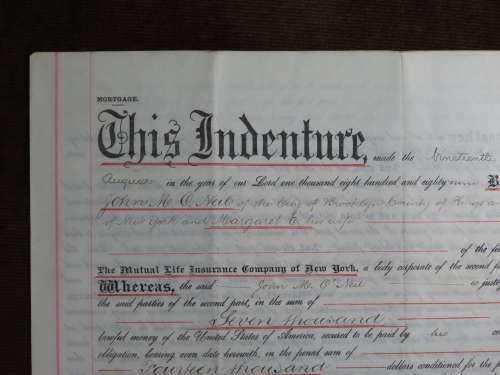 MORTGAGE.
This Indenture, made the nineteenth
August in the year of our Lord one thousand eight hundred and eighty nine B
John M. O'Neil of the City of Brooklyn County of Kings
of New York and Margaret E. his wife
of the fi
The Mutual Life Insurance Company of New York, a body corporate of the second p
Whereas, the said John M. O'Neil justly
the said parties of the second part, in the sum of
Seven thousand
lawful money of the United States of America, secured to be paid by his co
obligation, bearing even date herewith, in the penal sum of
Fourteen thousand dollars conditioned for the p